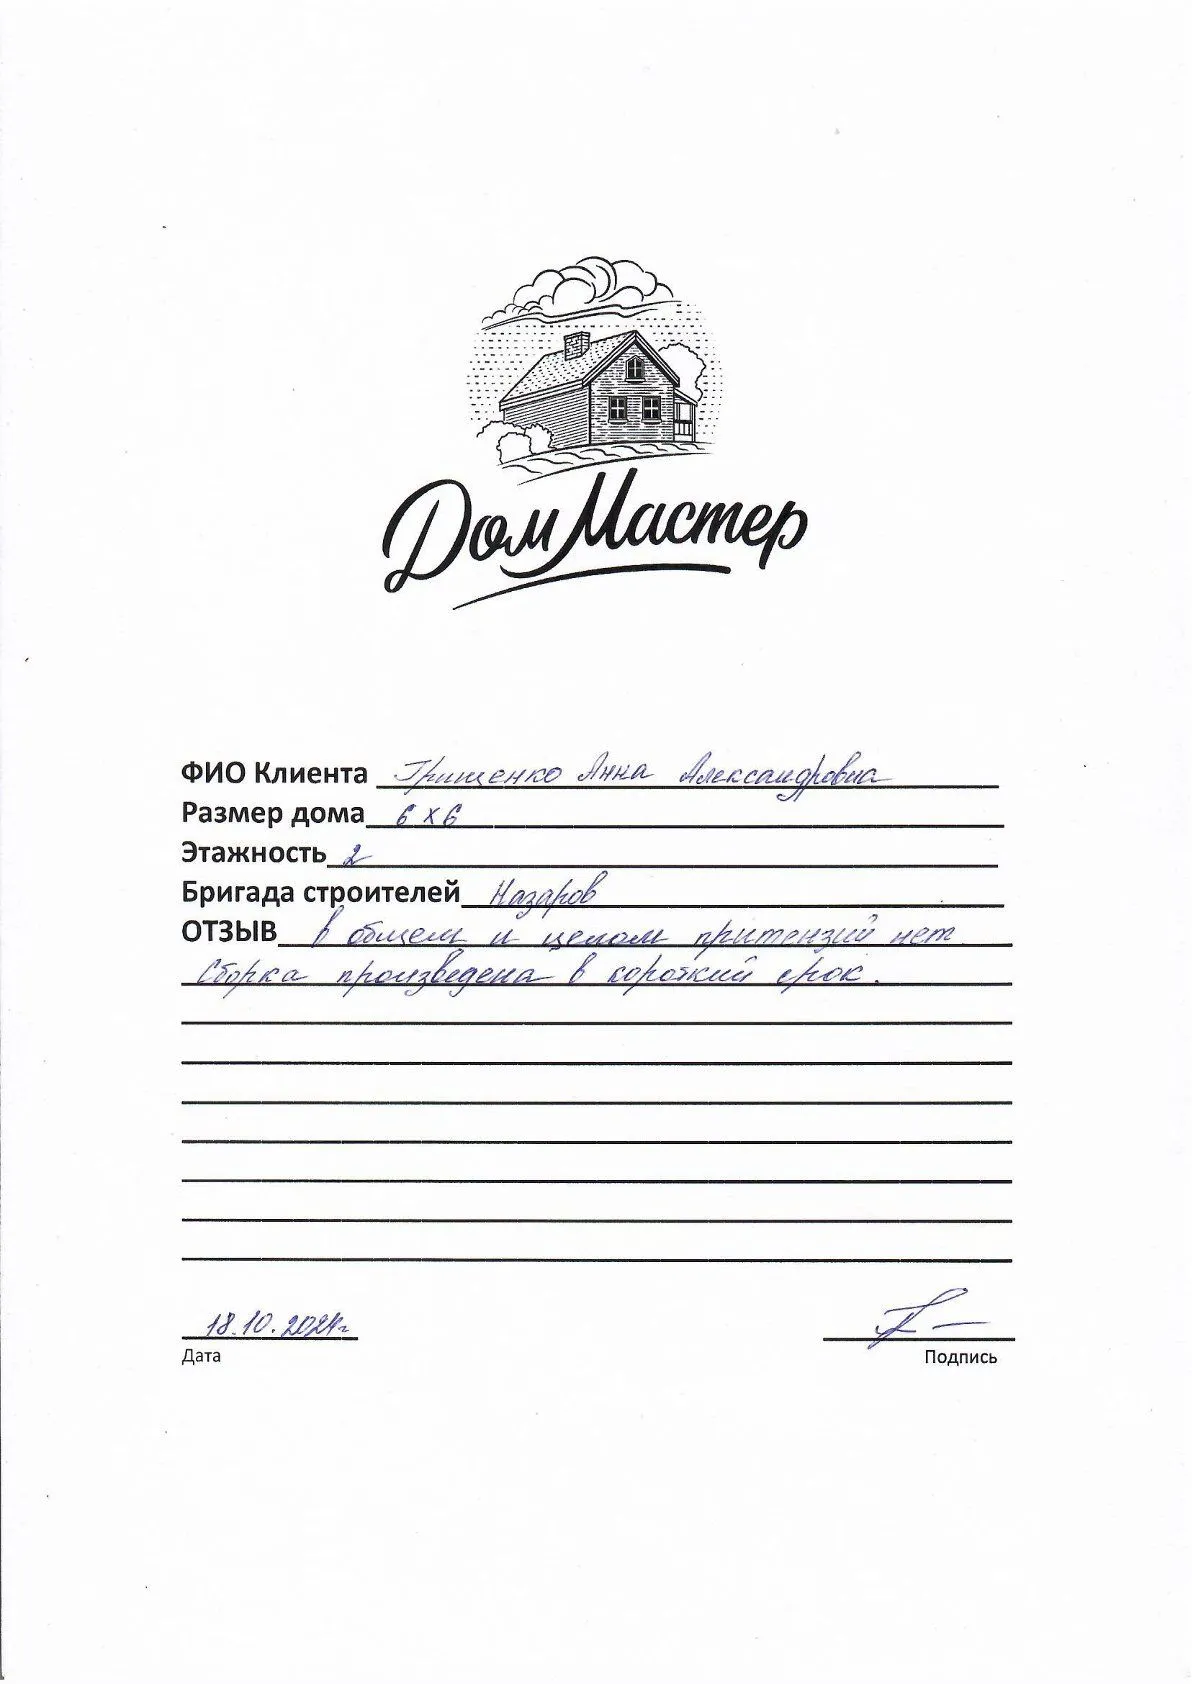 Дом Мастер
ФИО Клиента Грищенко Анна Александровна
Размер дома 6 х 6
Этажность 2
Бригада строителей Назаров
ОТЗЫВ в общем и целом притензий нет.
Сборка произведена в короткий срок.
18.10.2024г
Дата
Подпись